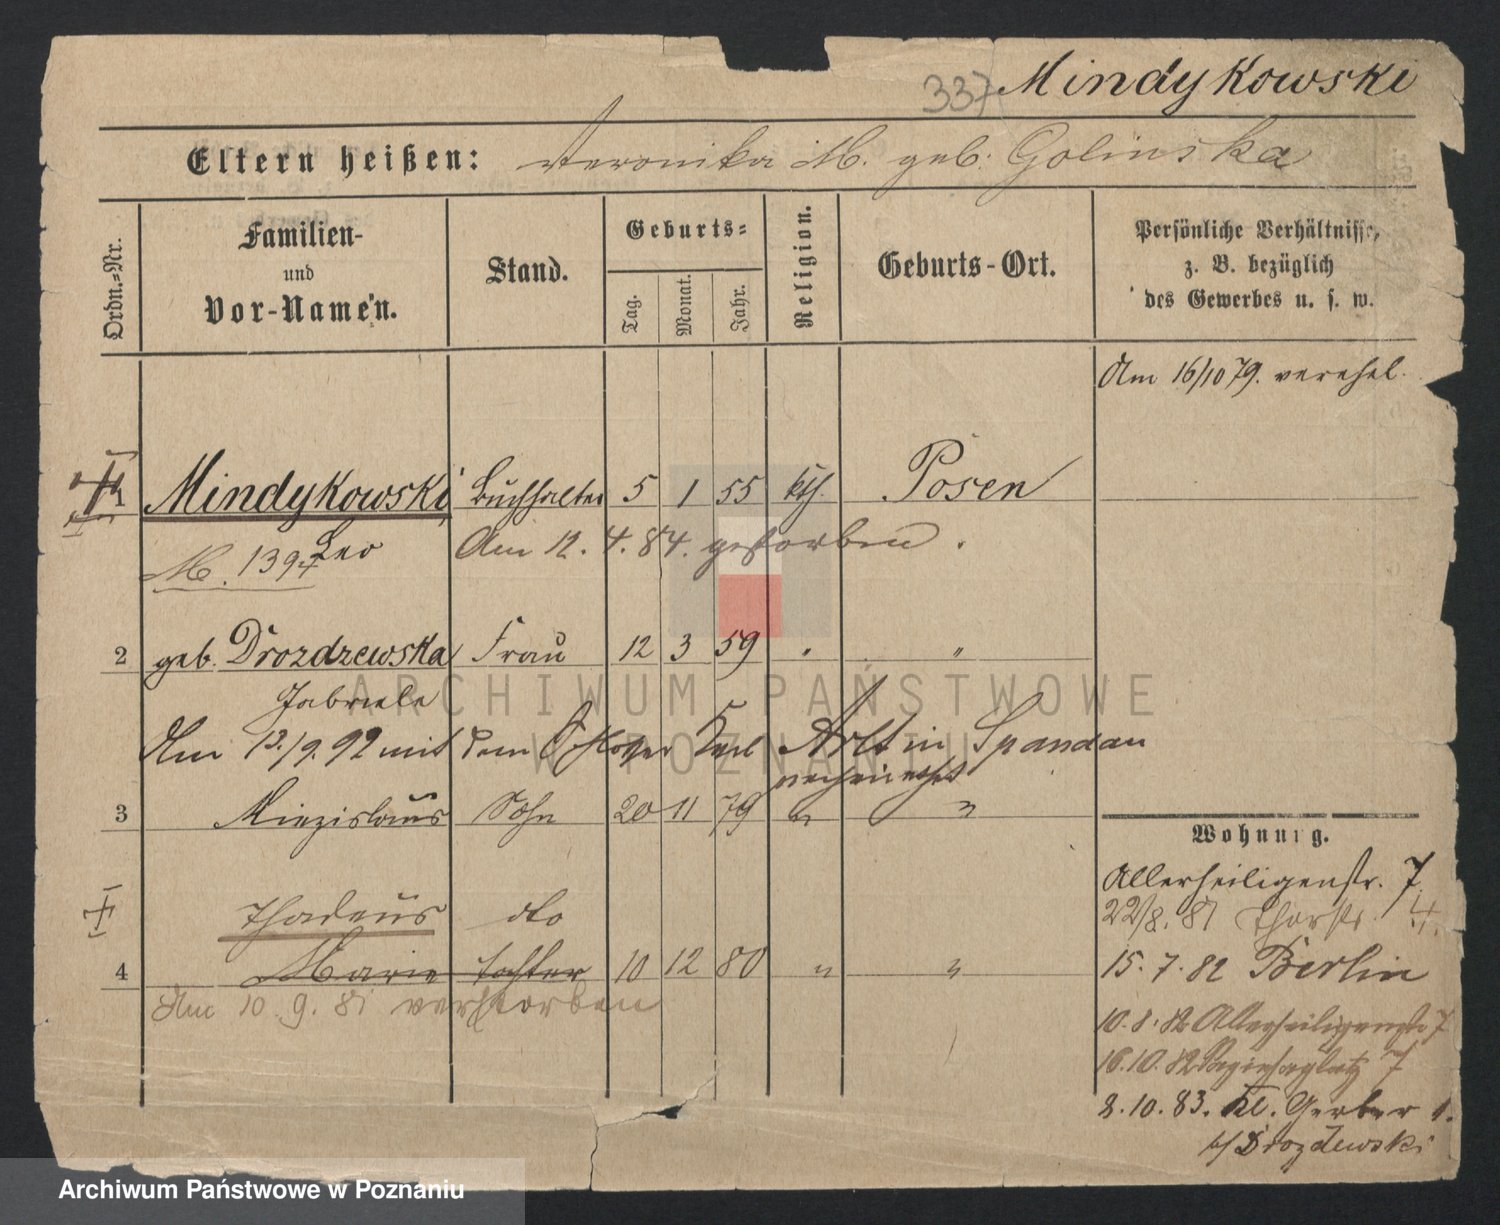 337 Mindykowski
Eltern heißen: Veronika M. geb. Golinska
Ordn.-Nr.
Familien- und Vor-Namen.
Stand.
Geburts-
Tag. Monat. Jahr.
Religion.
Geburts-Ort.
Persönliche Verhältnisse,
z. B. bezüglich
des Gewerbes u. s. w.
Am 16/10 79. verehel.
1 Mindykowski Buchhalter 5 1 55 kth. Posen
Leo Am 12. 4. 84. gestorben.
M. 1394
2 geb. Drozdzewska Frau 12 3 59 " "
Gabriele
Am 13./9. 92 mit dem Schlosser Karl Arlt in Spandau
verheirathet
3 Miezislaus Sohn 20 11 79 " "
Thadeus do
4 Marie Tochter 10 12 80 " "
Am 10. 9. 81 verstorben
Wohnung.
Allerheiligenstr. 7
22/8. 81 Thorstr. 4.
15. 7. 82 Berlin
10. 8. 82 Allerheiligenstr 7
16. 10. 82 Sapiehaplatz 7
8. 10. 83. Kl. Gerber 1.
b/ Drozdewski
ARCHIWUM PAŃSTWOWE
W POZNANIU
Archiwum Państwowe w Poznaniu